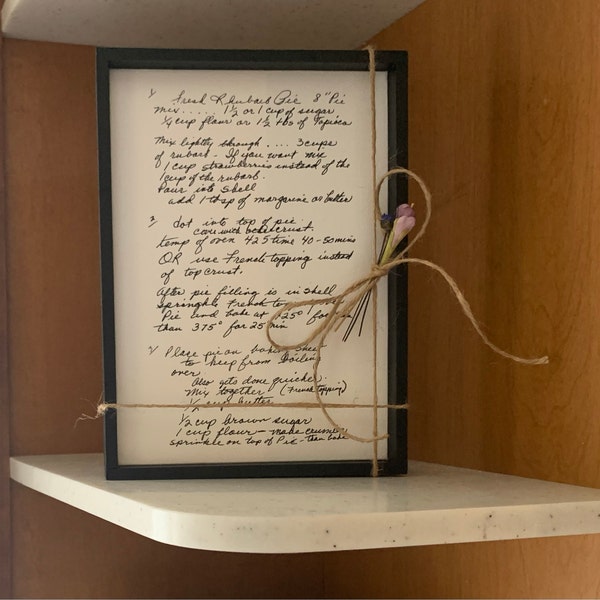 1/ Fresh Rhubarb Pie 8" Pie
mix..... 1 1/2 or 1 cup of sugar
1/4 cup flour or 1 1/2 tbs of Tapioca
Mix lightly through .... 3 cups
of rubarb - If you want mix
1 cup strawberries instead of the
1 cup of the rubarb.
Pour into shell
add 1 tbsp of margarine or butter
3/ dot into top of pie
cover with crust.
temp of oven 425 time 40-50 mins
OR use French topping instead
of top crust.
After pie filling is in shell
sprinkle French
Pie and bake at 425° for
than 375° for 25 min
2/ Place pie on baking sheet
to keep from boiling
over
Also gets done quicker.
Mix together (French topping)
1/2 cup butter
1/2 cup brown sugar
1 cup flour - make crumbs
sprinkle on top of Pie - than bake